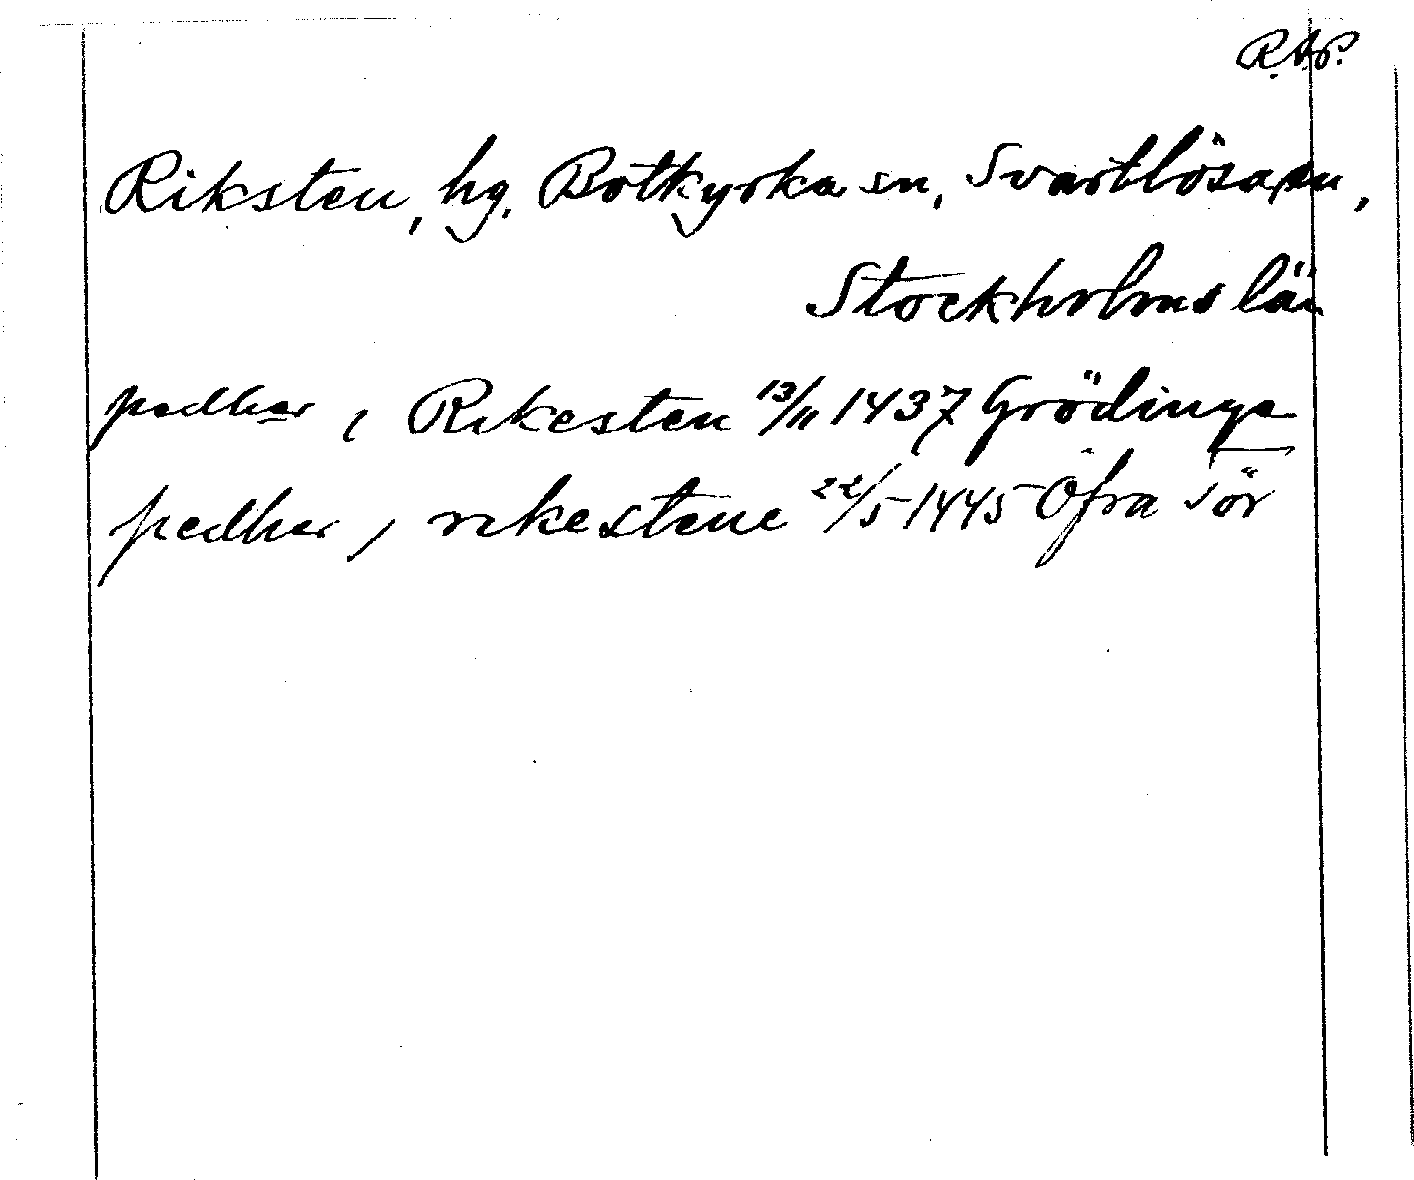 R.A.P.
Riksten, hg. Botkyrka sn, Svartlösa sn,
Stockholms län
pædhar i Rikesten 13/11 1437 Grödinge
pedher i rikestene 22/5 1445 Öfra Tör